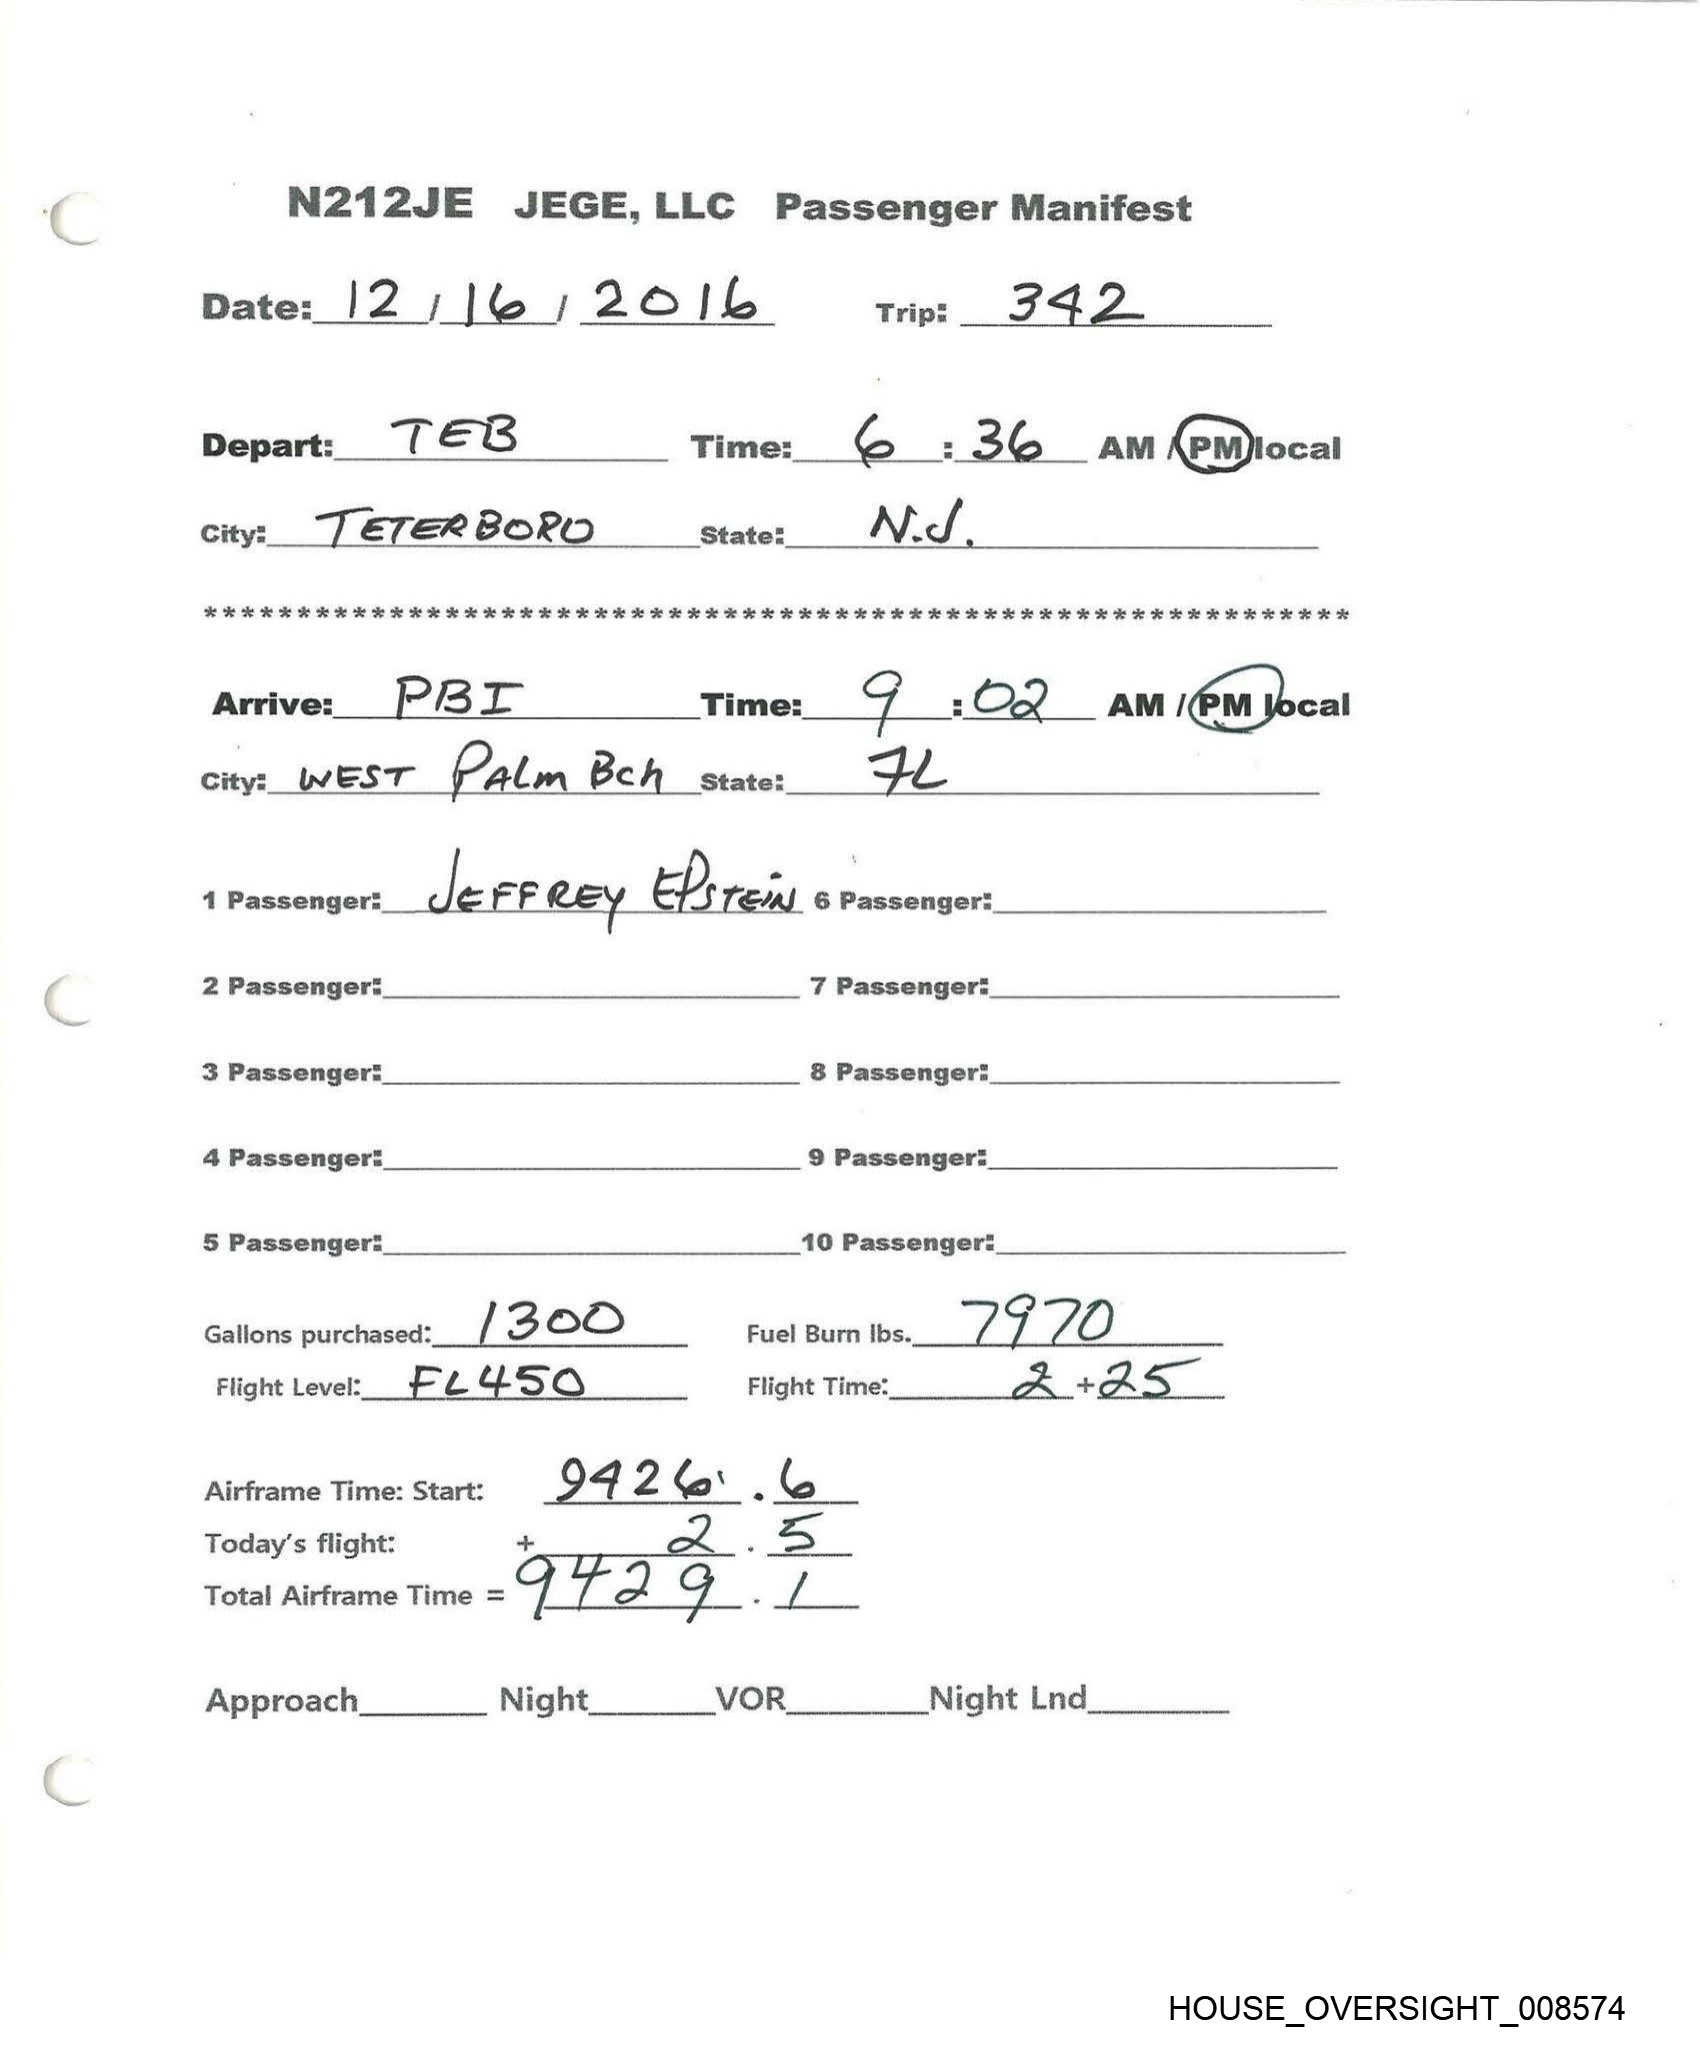 N212JE JEGE, LLC Passenger Manifest
Date: 12 / 16 / 2016 Trip: 342
Depart: TEB Time: 6 : 36 AM / PM local
City: TETERBORO State: N.J.
******************************************************************
Arrive: PBI Time: 9 : 02 AM / PM local
City: WEST PALM Bch State: FL
1 Passenger: JEFFREY EPSTEIN 6 Passenger:
2 Passenger: 7 Passenger:
3 Passenger: 8 Passenger:
4 Passenger: 9 Passenger:
5 Passenger: 10 Passenger:
Gallons purchased: 1300 Fuel Burn lbs. 7970
Flight Level: FL450 Flight Time: 2 + 25
Airframe Time: Start: 9426 . 6
Today's flight: + 2 . 5
Total Airframe Time = 9429 . 1
Approach Night VOR Night Lnd
HOUSE_OVERSIGHT_008574